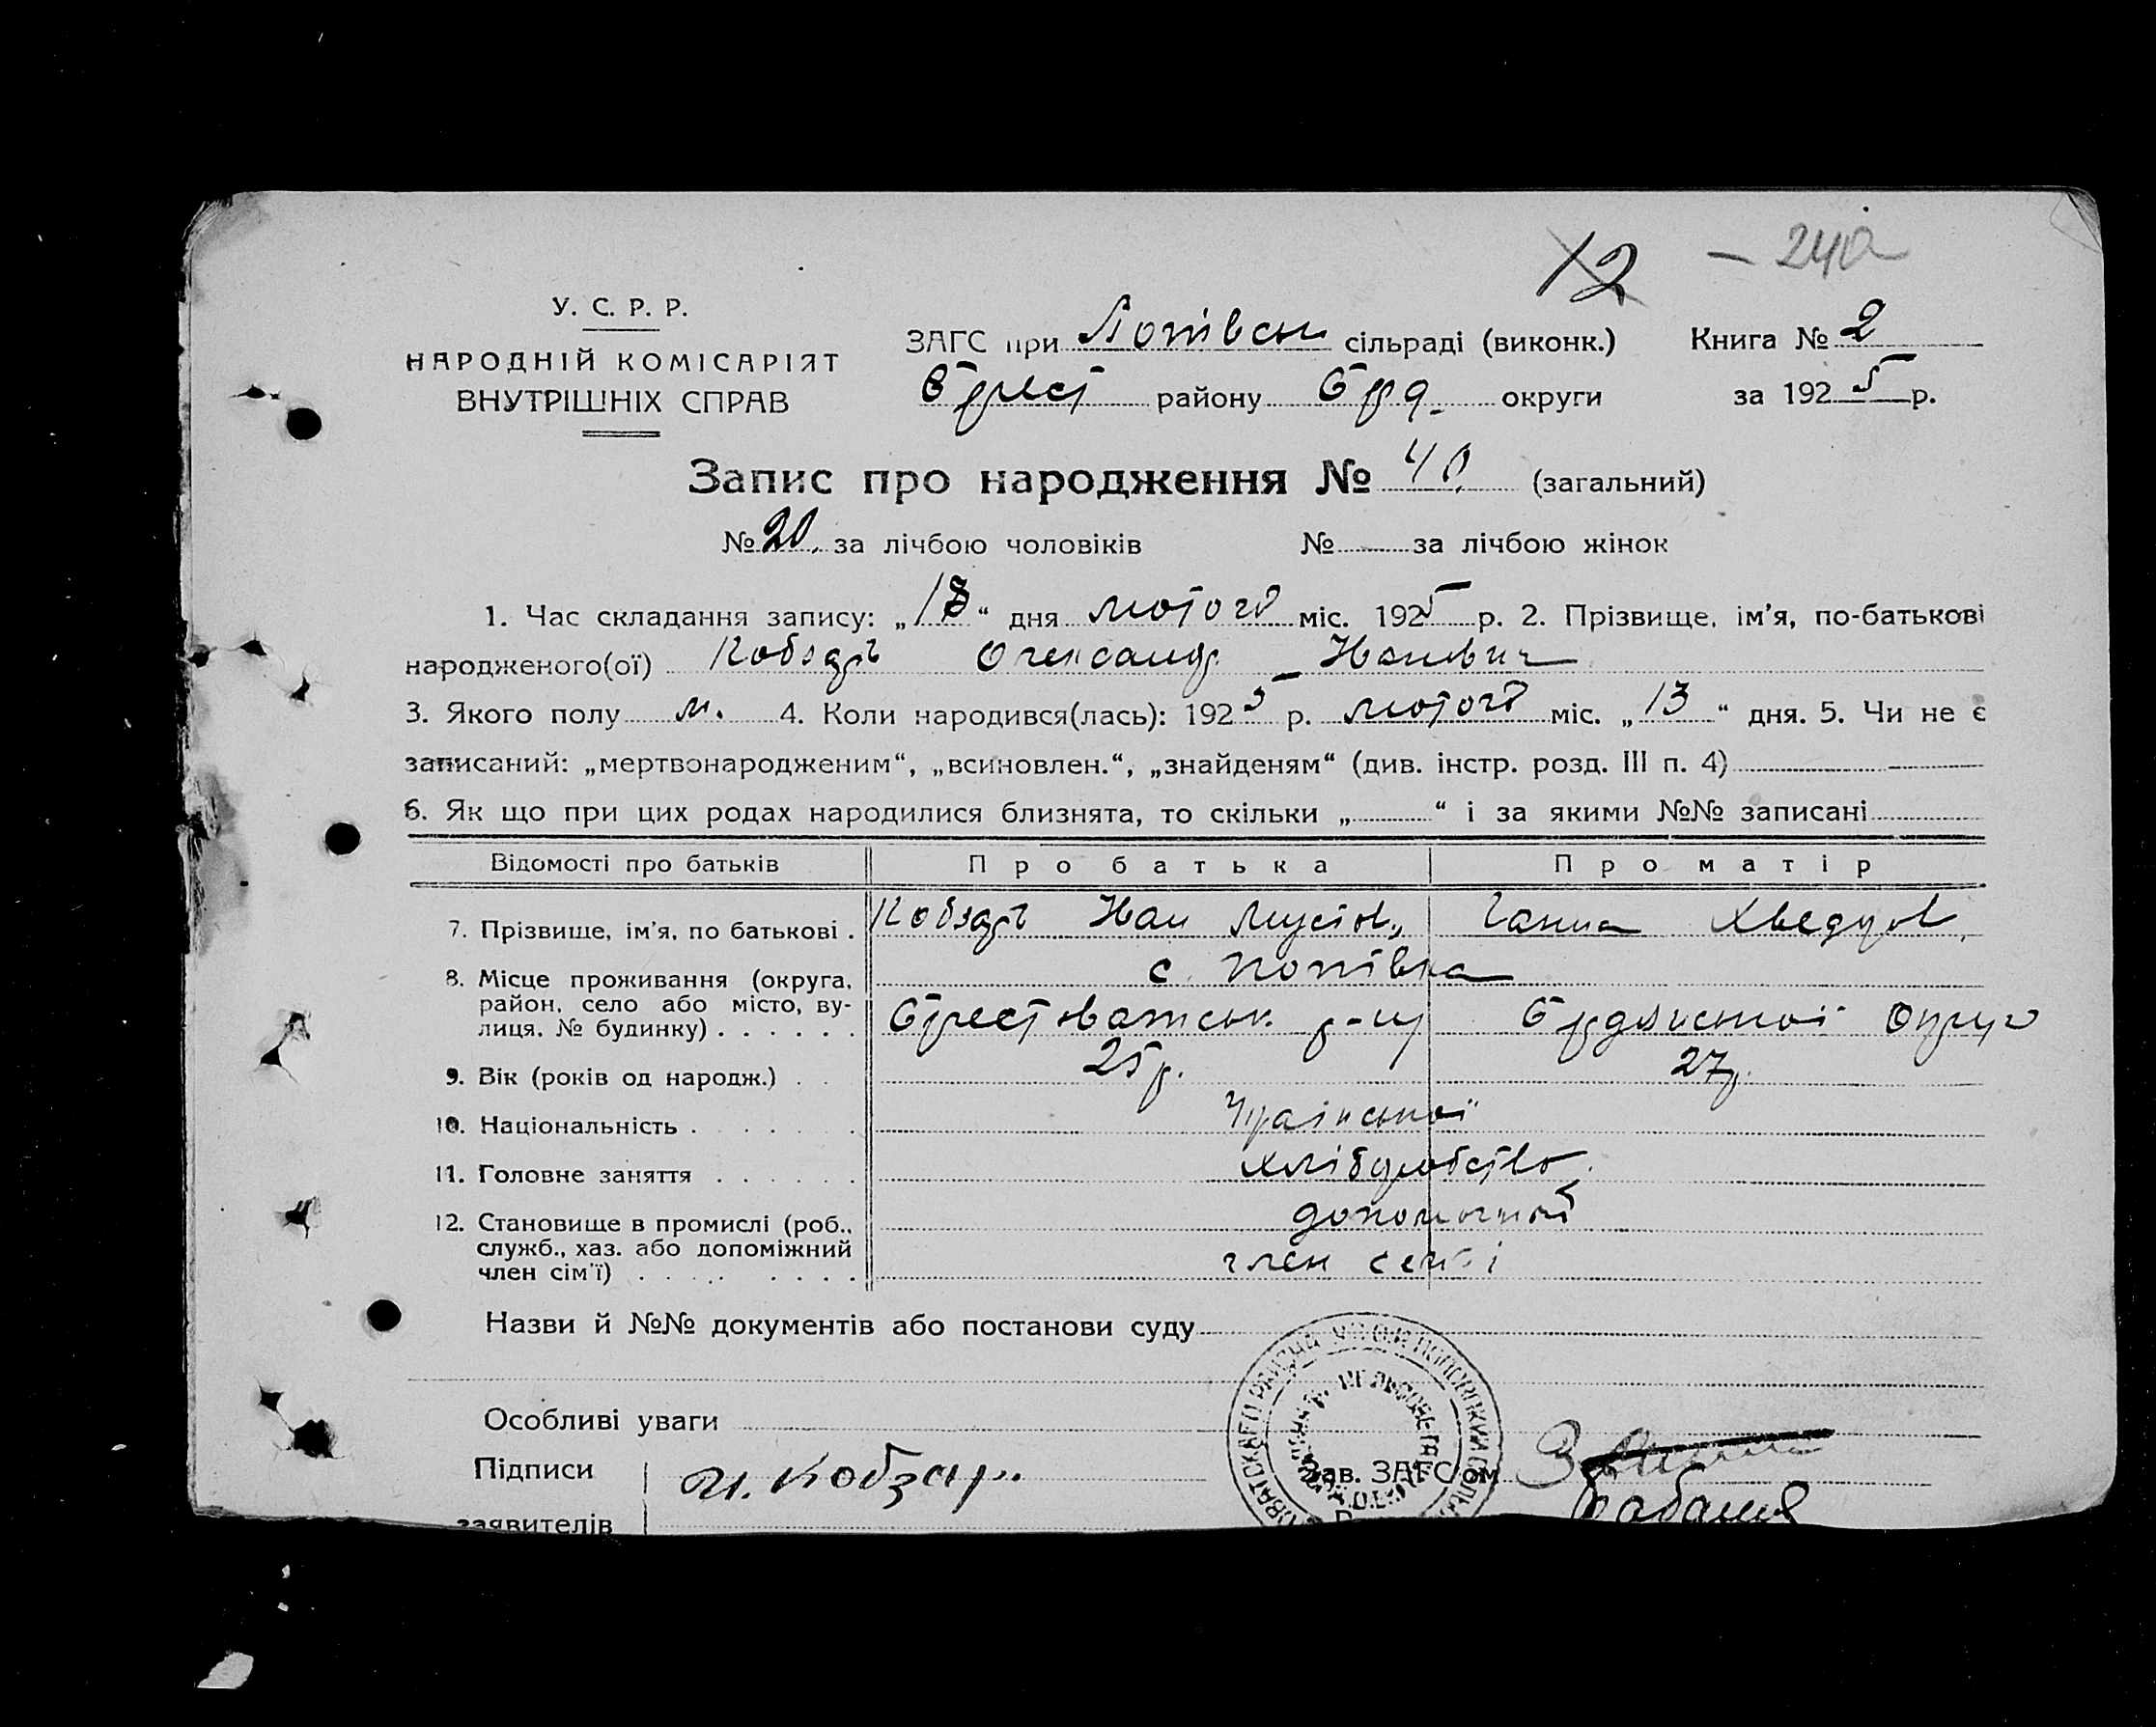 12 — 240
У. С. Р. Р.
НАРОДНІЙ КОМІСАРІЯТ
ВНУТРІШНІХ СПРАВ
ЗАГС при Попівськ сільраді (виконк.) Книга № 2
району округи за 1925 р.
Запис про народження № 40. (загальний)
№ 20. за лічбою чоловіків № за лічбою жінок
1. Час складання запису: „18“ дня лютого міс. 1925 р. 2. Прізвище, ім'я, по-батькові
народженого(ої) Кобзарь Олександр Иванович
3. Якого полу м. 4. Коли народився(лась): 1925 р. лютого міс. „13“ дня. 5. Чи не є
записаний: „мертвонародженим“, „всиновлен.“, „знайденям“ (див. інстр. розд. III п. 4)
6. Як що при цих родах народилися близнята, то скільки „ “ і за якими №№ записані
Відомості про батьків Про батька Про матір
7. Прізвище, ім'я, по батькові . Кобзарь Иван Ганна Хведоров.
8. Місце проживання (округа, с. Попівка
район, село або місто, ву-
лиця, № будинку) . . . . . . р-ну
9. Вік (років од народж.) . . 25 р. 27 р.
10. Національність . Української
11. Головне заняття . . . . . . хліборобство.
12. Становище в промислі (роб.,
служб., хаз. або допоміжний
член сім'ї) . . . . . . . . член
Назви й №№ документів або постанови суду
Особливі уваги
Підписи И. Кобзар Зав. ЗАГС'ом
заявителів